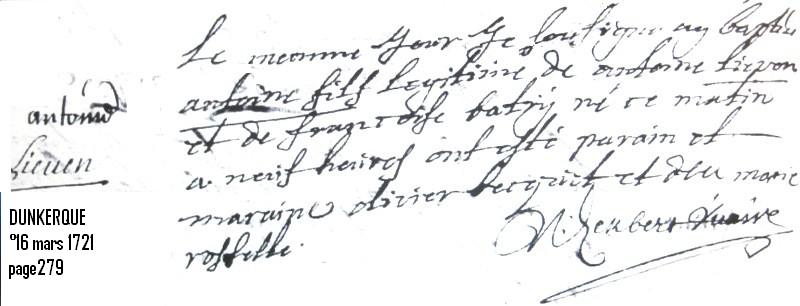 antoine
Lieven
DUNKERQUE
°16 mars 1721
page279
Le mesme Jour Je soussigne ay baptise
antoine fils legitime de antoine Lieven
et de francoise batÿ né ce matin
a neuf heures ont esté parain et
maraine olivier becquet et marie
rosselle.
N. Reubert vicaire